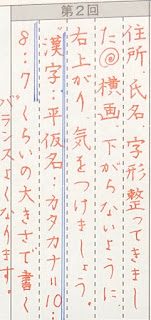 第2回
住所氏名 字形整ってきまし
た◎横画、下がらないように
右上がり、気をつけましょう。
漢字：平仮名：カタカナ＝10：
8：7くらいの大きさで書く
バランスよくなります。